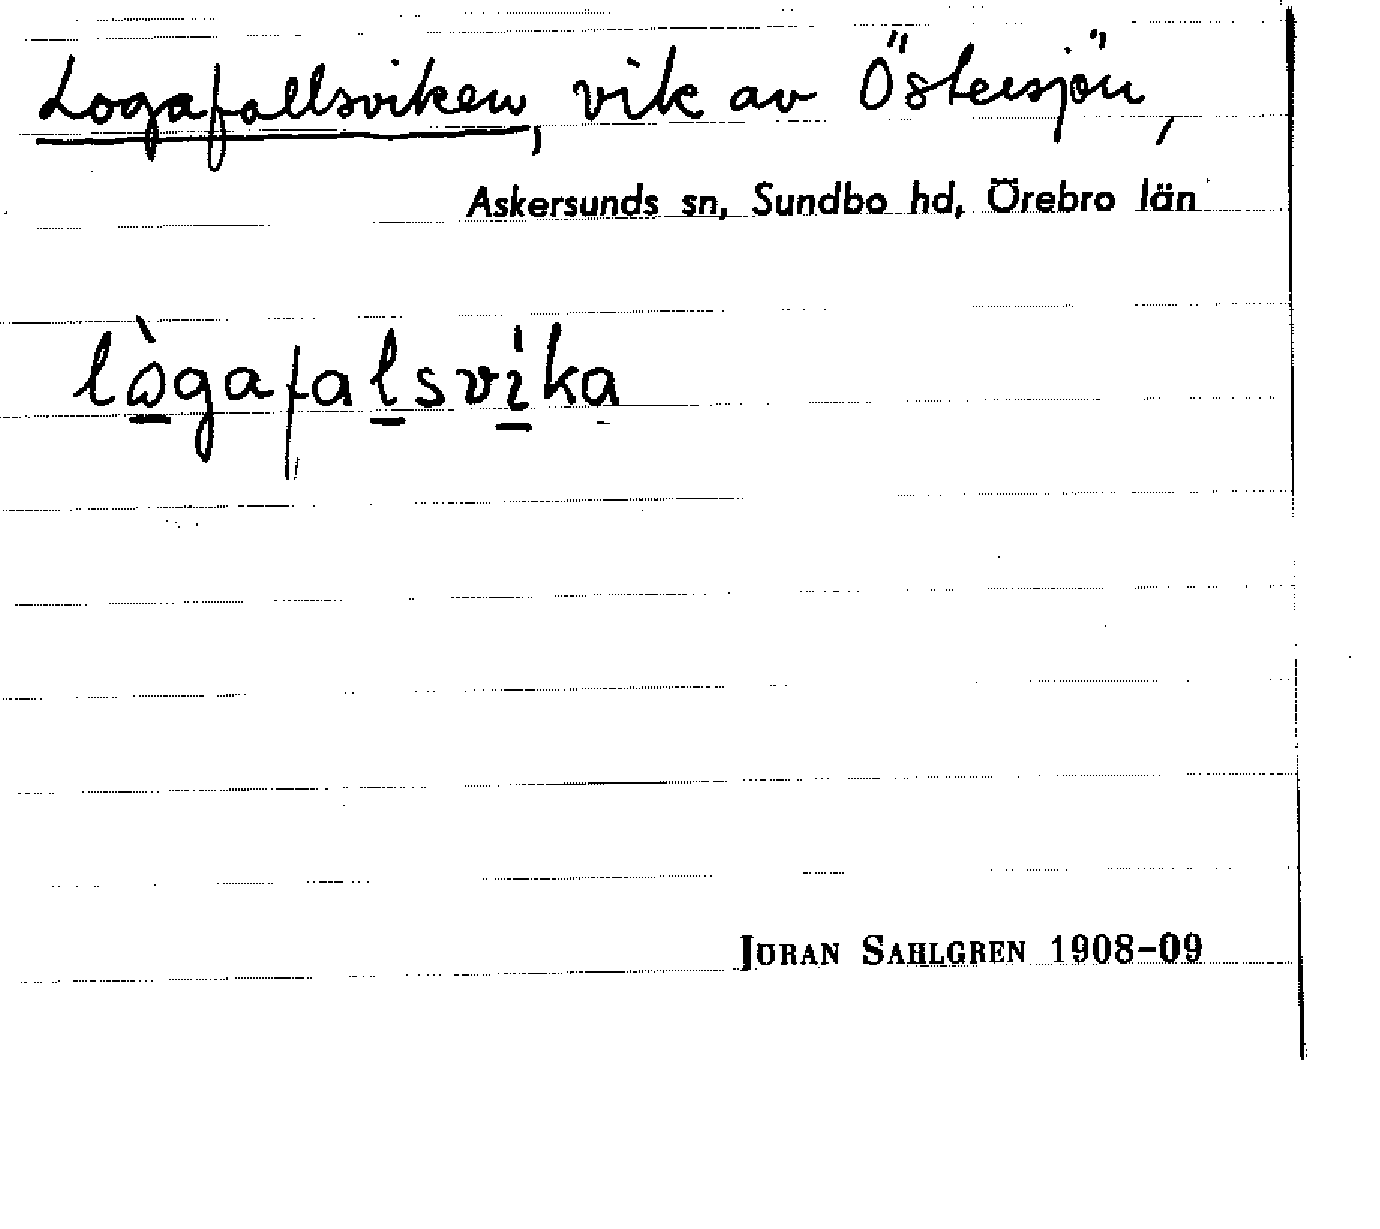 Logafallsviken, vik av Östersjön,
Askersunds sn, Sundbo hd, Örebro län
lògafalsvika
JÖRAN SAHLGREN 1908-09